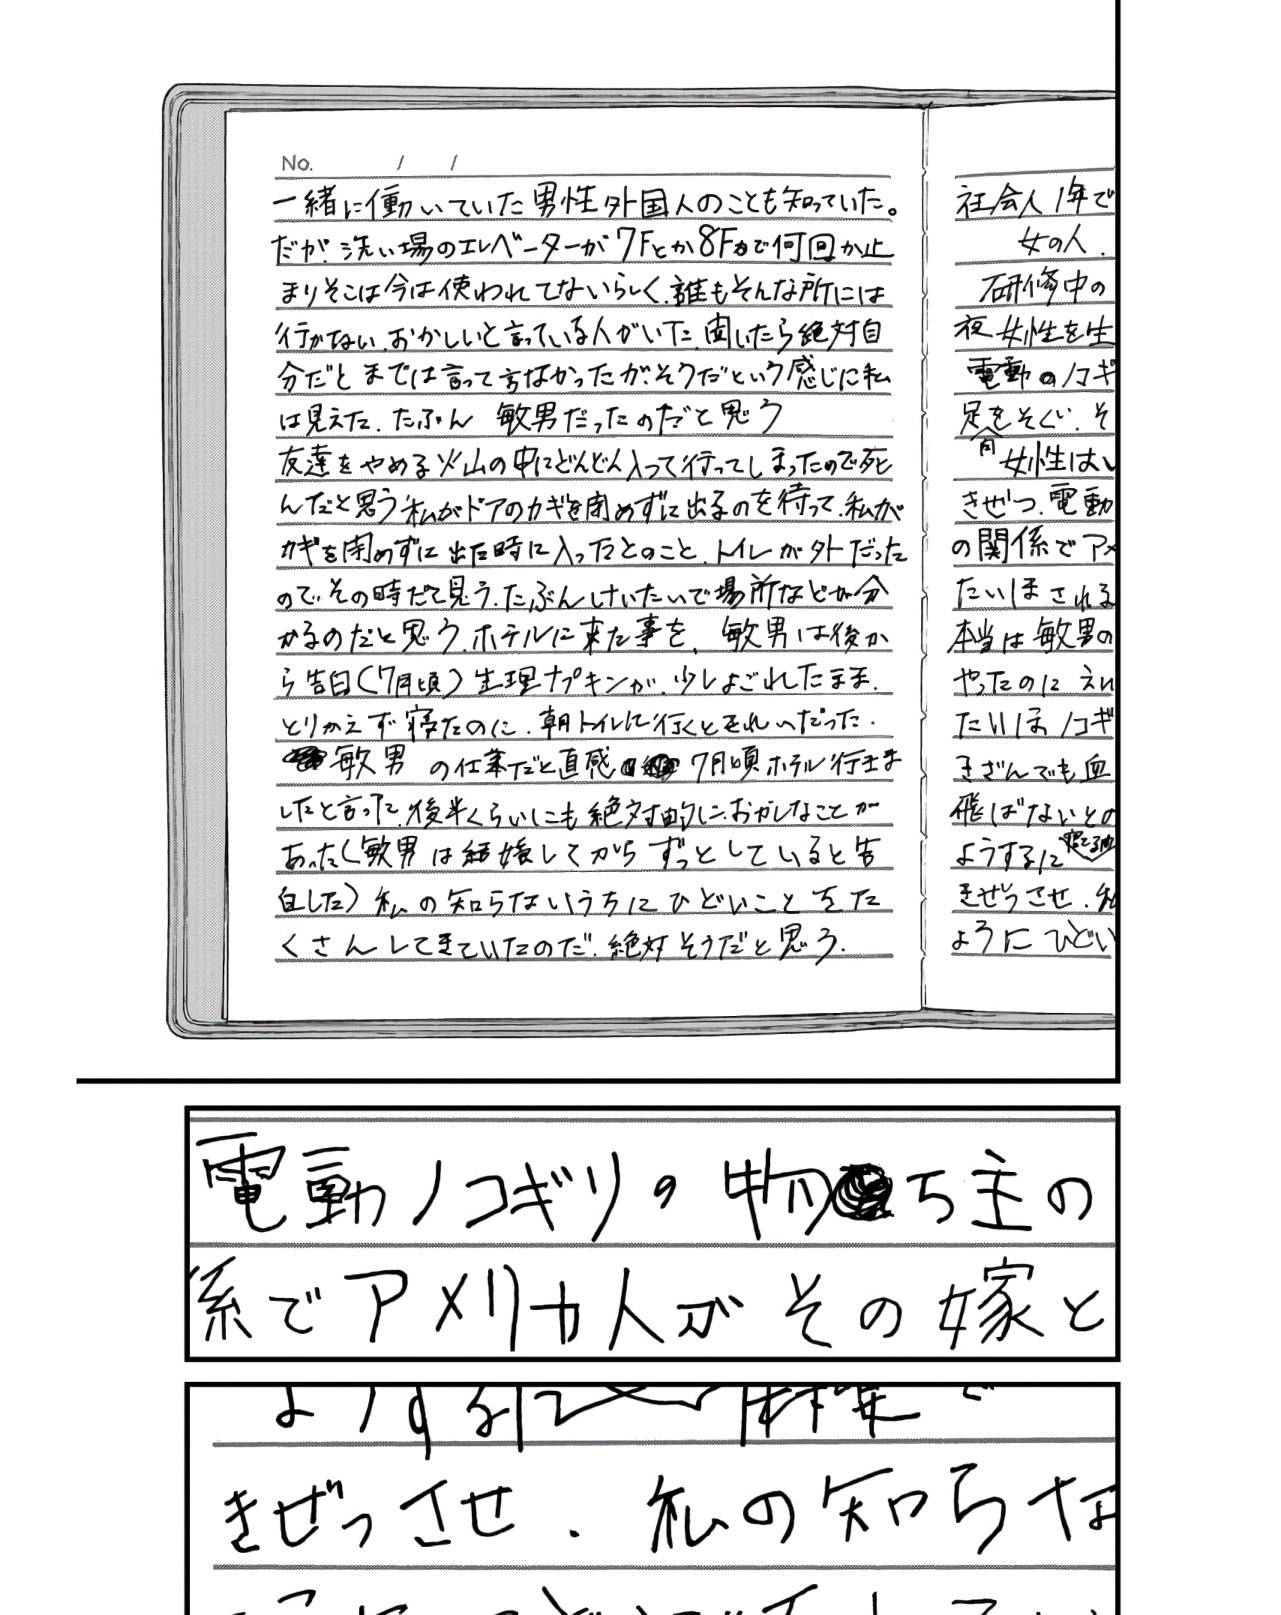 No. / /
一緒に働いていた男性外国人のことも知っていた。
だが、洗い場のエレベーターが7Fとか8Fかで何回か止
まりそこは今は使われてないらしく、誰もそんな所には
行かない、おかしいと言っている人がいた、聞いたら絶対自
分だとまでは言って言なかったが、そうだという感じに私
は見えた、たぶん 敏男だったのだと思う
友達をやめる火山の中にどんどん入って行ってしまったので死
んだと思う私がドアのカギを閉めずに出るのを待って、私が
カギを閉めずに出た時に入ったとのこと、トイレが外だった
ので、その時だと思う、たぶんけいたいで場所などが分
かるのだと思う、ホテルに来た事を、敏男は後か
ら告白(7月頃)生理ナプキンが、少しよごれたまま、
とりかえず寝たのに、朝トイレに行くときれいだった、
敏男 の仕業だと直感 7月頃ホテル行きま
したと言った、後半くらいにも絶対的に、おかしなことが
あった(敏男は結婚してからずっとしていると告
白した)私の知らないうちにひどいことをた
くさんしてきていたのだ、絶対そうだと思う、
社会人1年で
女の人、
研修中の
夜女性を生
電動のノコギ
足をそぐ、そ
向
女性はし
きぜつ、電動
の関係でアメ
たいほされる
本当は敏男の
やったのに えん
たいほノコギ
きざんでも血
飛ばないとの
ようするに 寝てる
きぜつさせ、私
ようにひどい
電動ノコギリの物ち主の
係でアメリカ人がその嫁と
ようするに
きぜつさせ、私の知らな